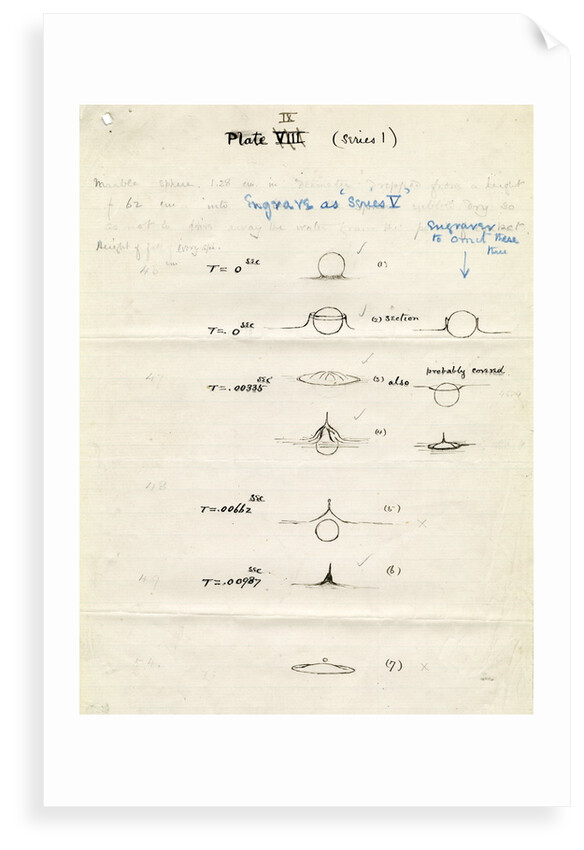 IX
Plate VIII (Series 1)
Marble sphere. 1.28 cm. in diameter dropped from a height
of 62 cm. into
Engrave as Series V
dry so
as not to drive away the water
Height of fall
Engraver
to omit these
three
T = 0 sec (1)
T = . 0 sec (2) Section
probably covered
47
T = .00335 sec (3) also
(4)
48
T = .00662 sec (5) x
T = .00987 sec (6)
49
(7) x